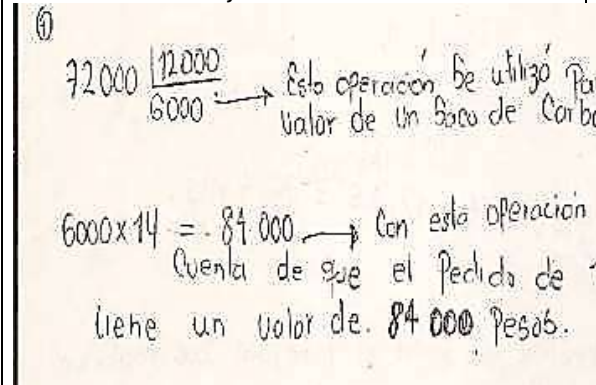 ①
72000 |12000
6000 → Esta operación Se utilizó Pa
Valor de un Saco de Carbo
6000x14 = 84.000 → Con esta operación
Cuenta de que el Pedido de 1
tiene un valor de. 84 000 Pesos.